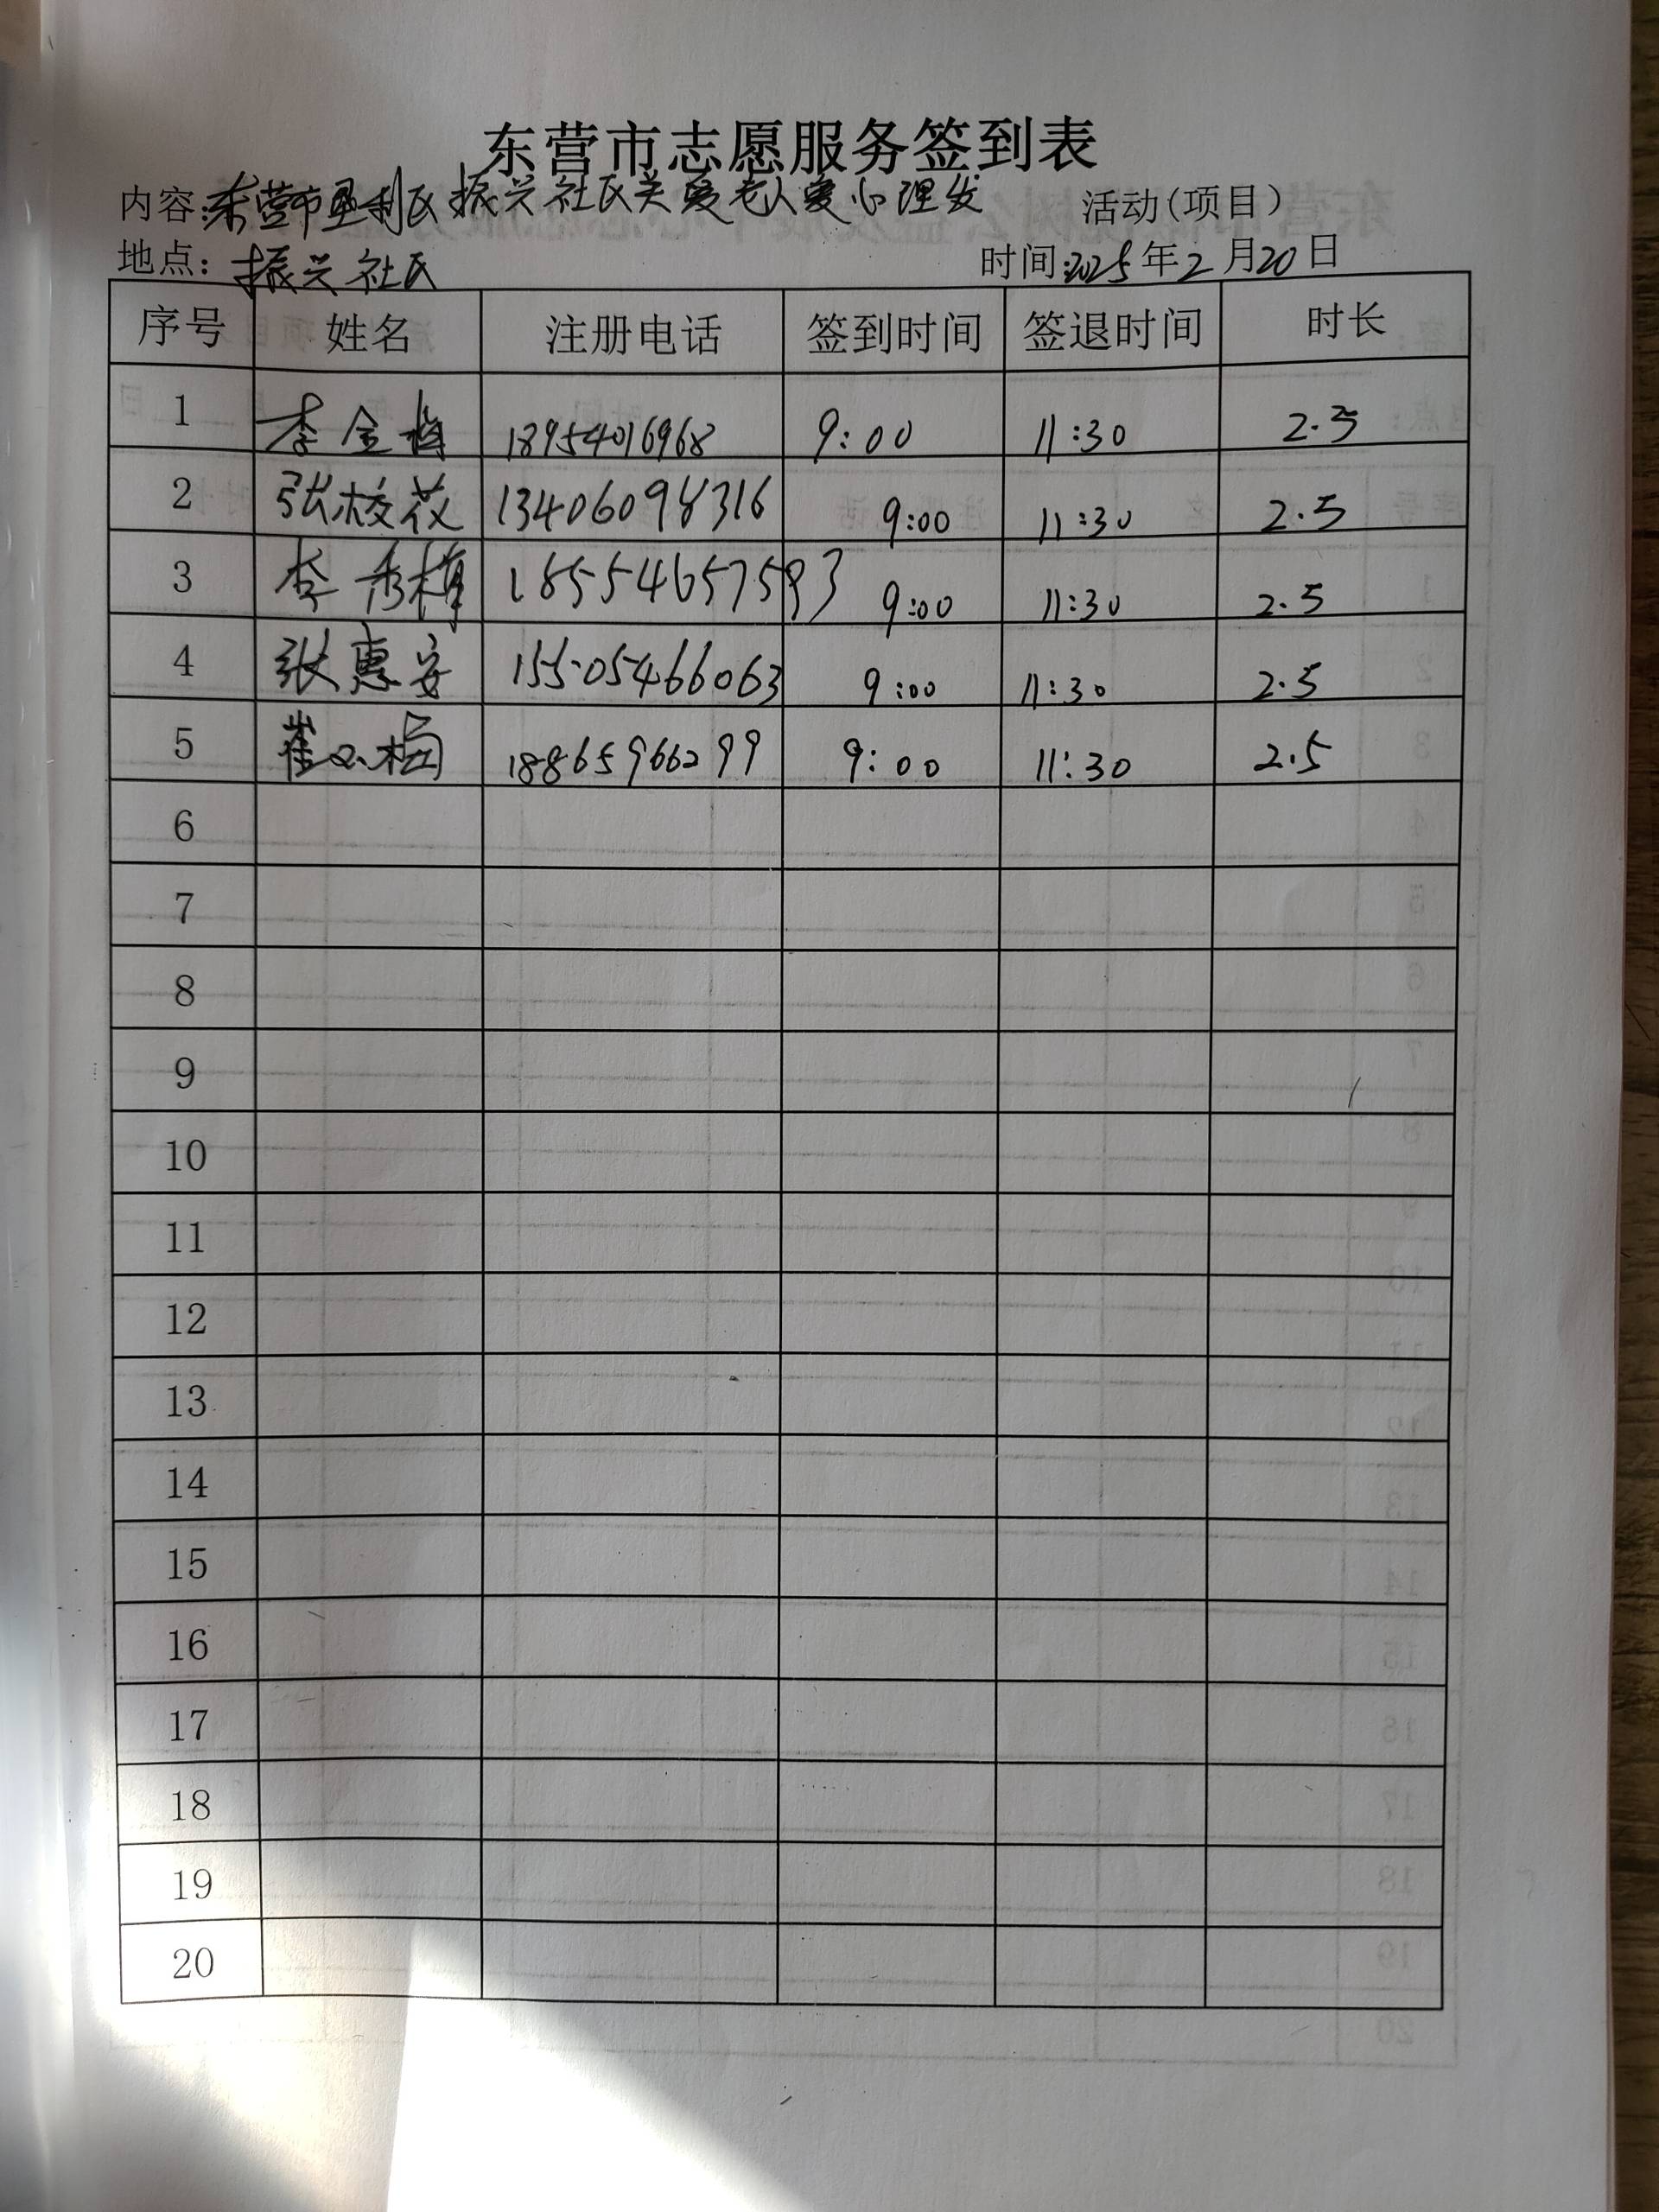 东营市志愿服务签到表
内容:东营市垦利区振兴社区关爱老人爱心理发 活动(项目)
地点:振兴社区 时间:2025年2月20日
序号 姓名 注册电话 签到时间 签退时间 时长
1 李金梅 18954016968 9:00 11:30 2.5
2 张校花 13406098316 9:00 11:30 2.5
3 李秀梅 18554657593 9:00 11:30 2.5
4 张惠安 15505466063 9:00 11:30 2.5
5 崔小梅 18865966299 9:00 11:30 2.5
6
7
8
9
10
11
12
13
14
15
16
17
18
19
20